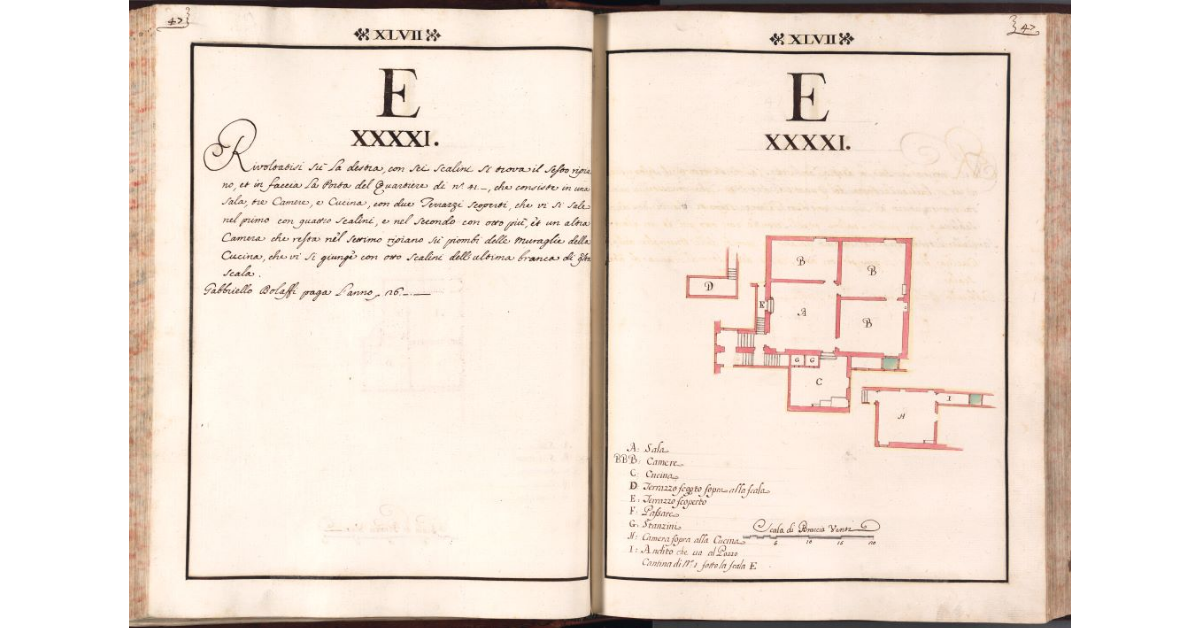 47
XLVII
E
XXXXI.
Rivoltatisi sú la destra, con sei scalini si trova il sesto ripia
no, et in faccia la Porta del Quartiere di nº. 41., che consiste in una
Sala, tre Camere, e Cucina, con due Terrazzi scoperti, che vi si sale
nel primo con quattro scalini, e nel secondo con otto più, et un altra
Camera che resta nel settimo ripiano sú piombi delle muraglie della
Cucina, che vi si giunge con otto scalini dell'ultima branca di
scala.
Gabbriello Bolaffi paga l'anno 26.
47
XLVII
E
XXXXI.
B
B
D
E
A
B
G G
C
I
H
A: Sala
BBB: Camere
C Cucina
D Terrazzo scopto sopra alla scala
E: Terrazzo scoperto
F: Passare
G: Stanzini
H: Camera sopra alla Cucina
I: Andito che va al Pozzo
Cantina di Nº. 1 sotto la scala E
Scala di Braccia Venti
5 10 15 20